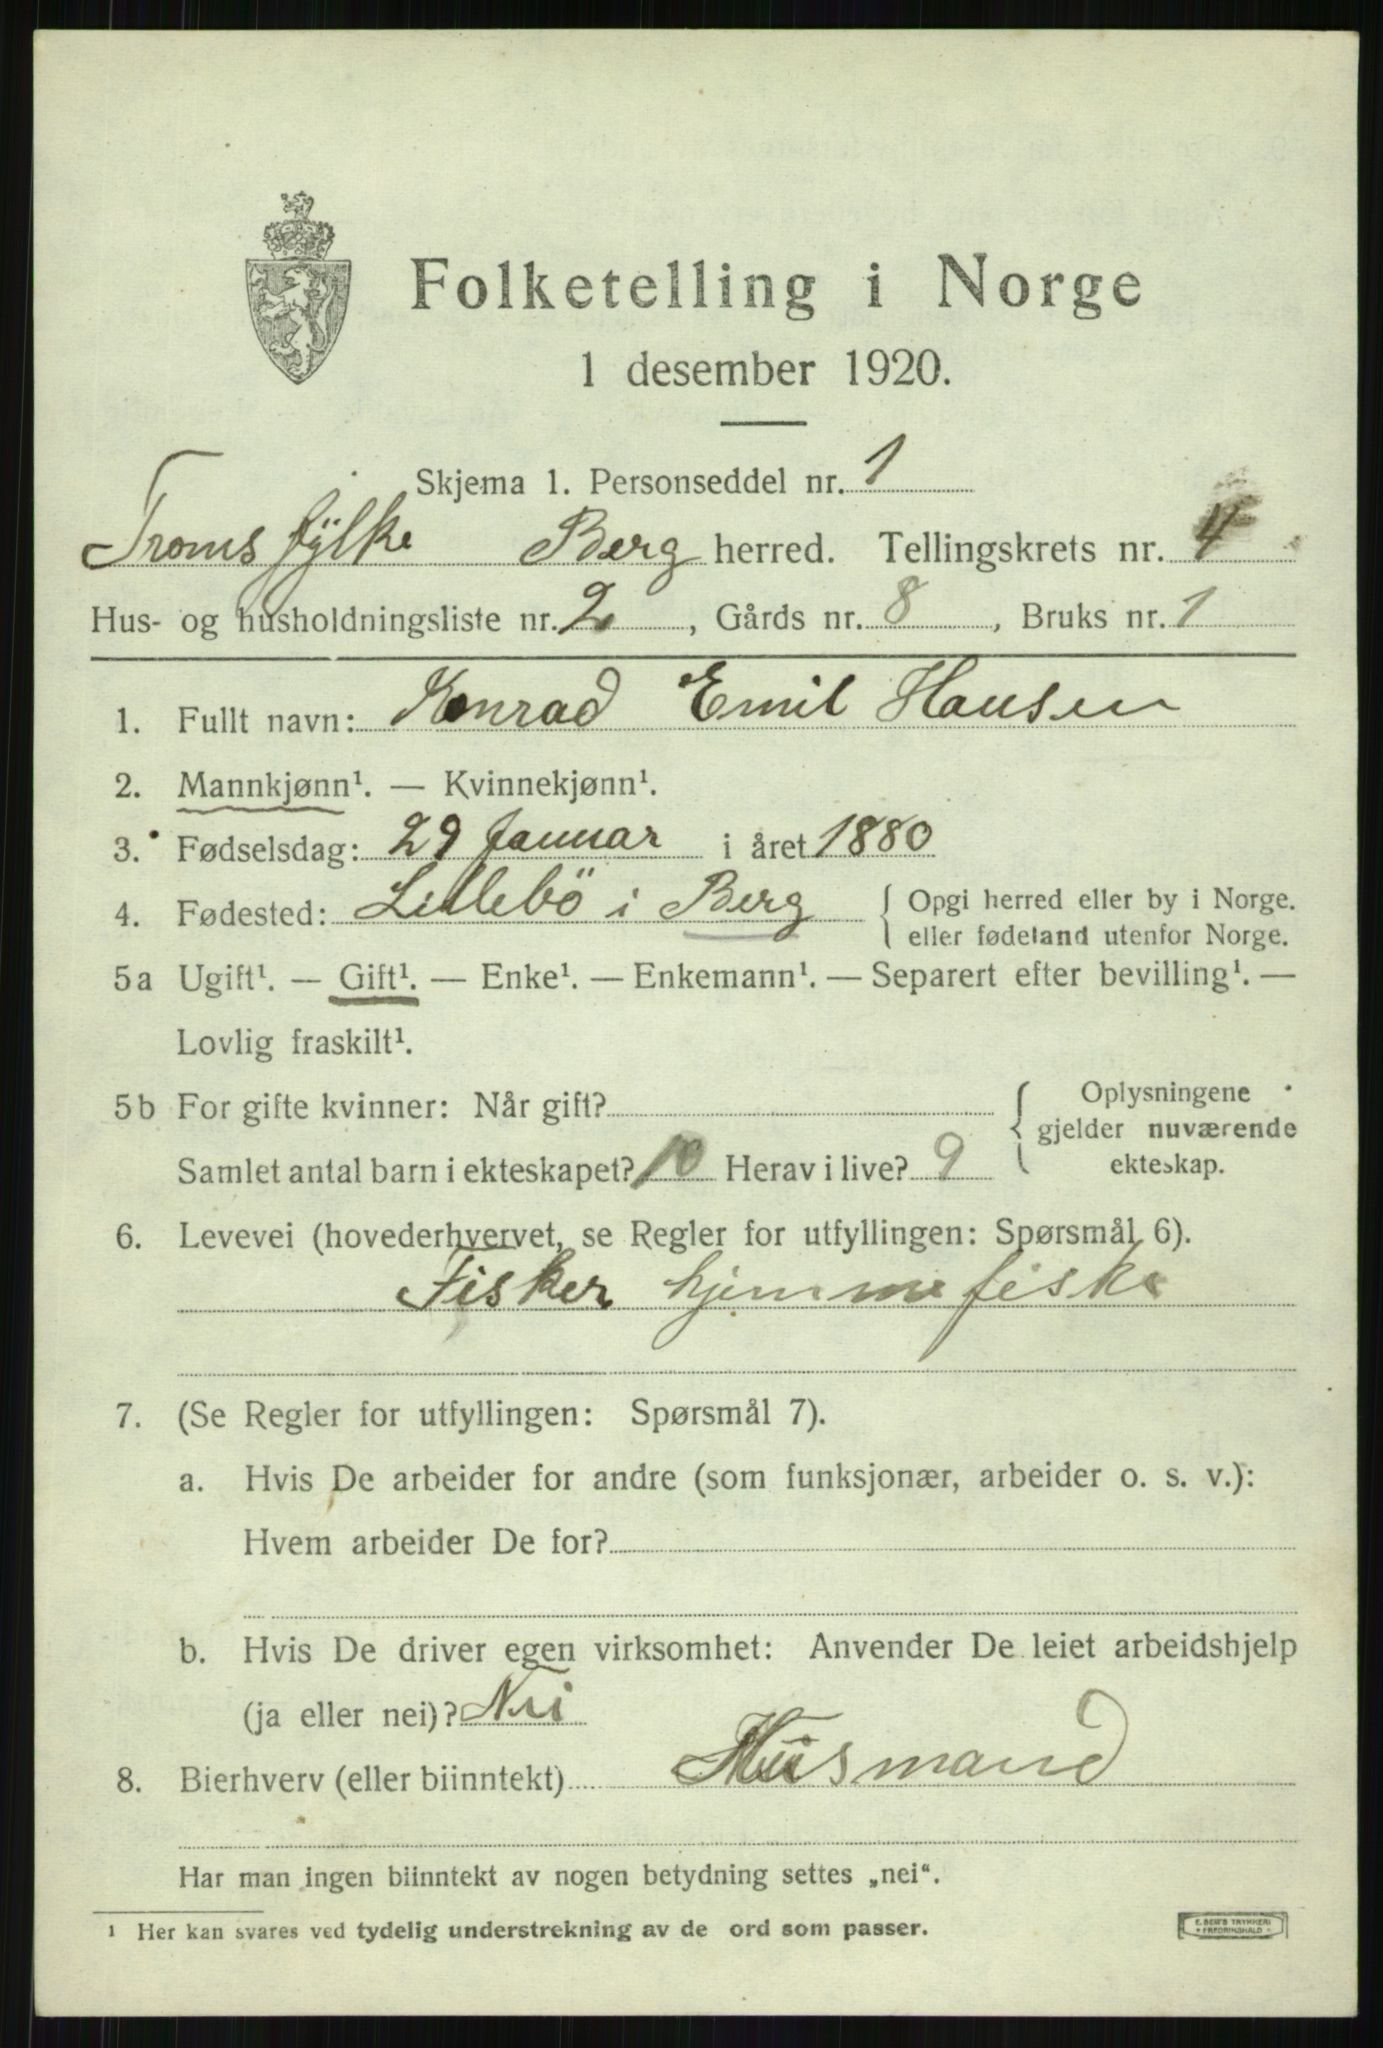 Folketelling i Norge
1 desember 1920.
Skjema 1. Personseddel nr. 1
Troms fÿlke Berg herred. Tellingskrets nr. 4
Hus- og husholdningsliste nr. 2, Gårds nr. 8, Bruks nr. 1
1. Fullt navn: Konrad Emil Hansen
2. Mannkjønn¹. — Kvinnekjønn¹.
3. Fødselsdag: 29 Januar i året 1880
4. Fødested: Lillebö i Berg { Opgi herred eller by i Norge.
eller fødeland utenfor Norge.
5a Ugift¹. — Gift¹. — Enke¹. — Enkemann¹. — Separert efter bevilling¹. —
Lovlig fraskilt¹.
5b For gifte kvinner: Når gift? { Oplysningene
gjelder nuværende
Samlet antal barn i ekteskapet? 10 Herav i live? 9 ekteskap.
6. Levevei (hovederhvervet, se Regler for utfyllingen: Spørsmål 6).
Fisker hjemmefiske
7. (Se Regler for utfyllingen: Spørsmål 7).
a. Hvis De arbeider for andre (som funksjonær, arbeider o. s. v.):
Hvem arbeider De for?
b. Hvis De driver egen virksomhet: Anvender De leiet arbeidshjelp
(ja eller nei)? Nei
8. Bierhverv (eller biinntekt) Husmand
Har man ingen biinntekt av nogen betydning settes „nei“.
¹ Her kan svares ved tydelig understrekning av de ord som passer.
E. SEM'S TRYKKERI
FREDRIKSHALD